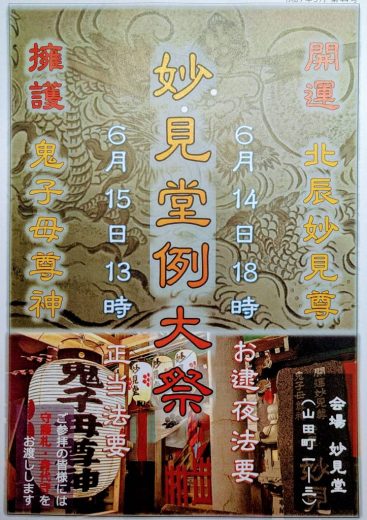 開運 北辰妙見尊
6月14日18時 お逮夜法要
妙見堂例大祭
6月15日13時 正当法要
擁護 鬼子母尊神
会場 妙見堂
ご参拝の皆様には
お渡しします
鬼子母尊神
妙見